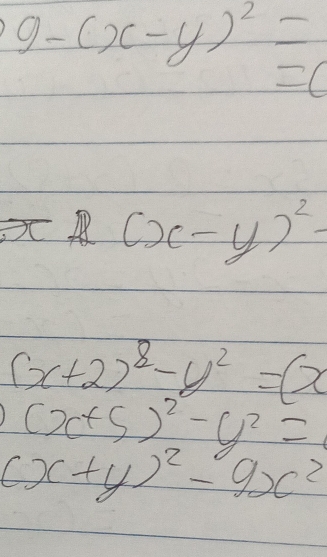 ) 9-(x-y)² =
=(
(x-y)² -
(x+2)² - y² =(x
) (x+5)² - y² =
(x+y)² - 9x²